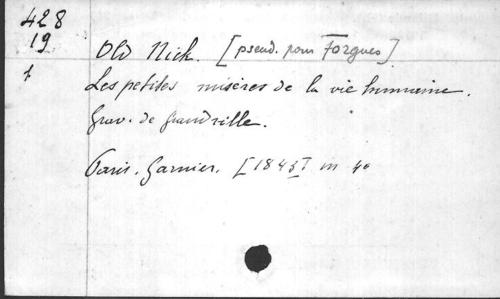 428
19
t
Old Nick. [pseud. pour Forgues]
Les petites misères de la vie humaine.
Grav. de Grandville.
Paris. Garnier. [1843] in 4o